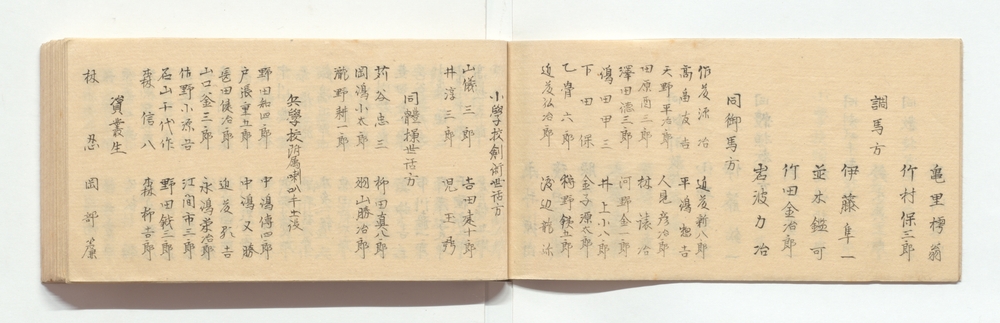 亀里樗翁
竹村保三郎
調馬方
伊藤隼一
並木鑑可
竹田金治郎
岩波力治
同御馬方
作及源治 追及新八郎
高島友吉 平鴻惣吉
天野平治郎 人見彦治郎
田原圅三郎 林議治
澤田徳三郎 河野金一郎
嶋田甲三 井上小八郎
下田保 金子源太郎
乙骨六郎 鵜野鉄五郎
追及弘治郎 渡辺龍泳
小學校劍術世話方
山儀三郎 吉田徒十郎
井淳三郎 児玉琇
同體操世話方
苅谷忠三 柳田真八郎
岡鴻小太郎 翅山勝治郎
瀧野耕一郎
兵學校附属喇叭千生後
野田和四郎 中鴻傳四郎
戸張重五郎 中鴻又勝
長田俵治郎 追及、吉
山口釜三郎 永鴻栄治郎
佐野小源吾 江間市三郎
石山千代作 野田鉄三郎
森信八 森新吉郎
資業生
林忍 岡部蘆